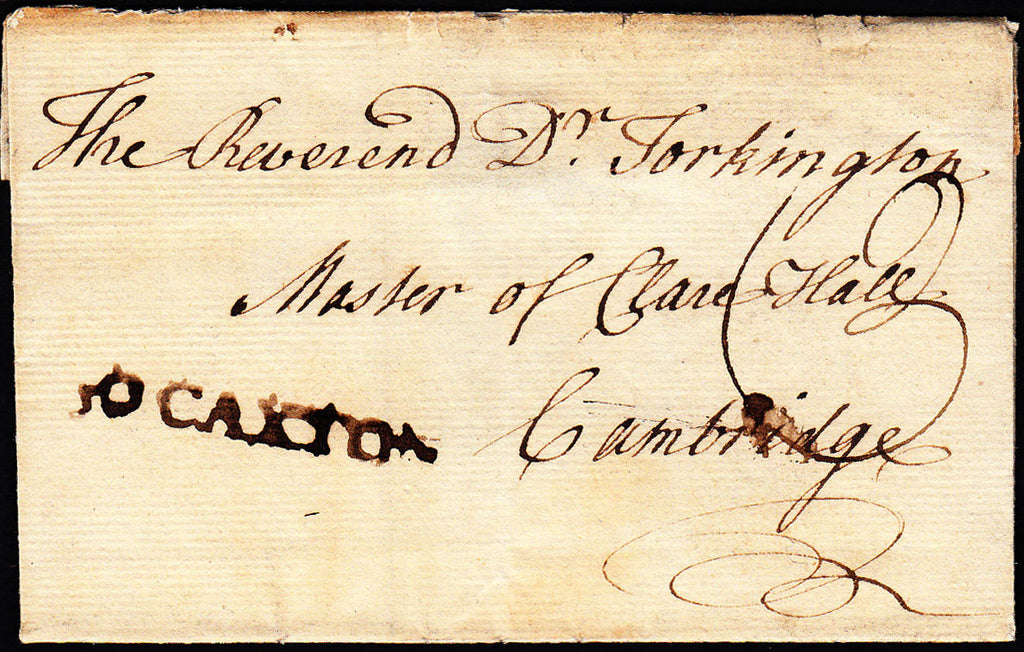 The Reverend Dr. Torkington
Master of Clare Hall
Cambridge
CAXTON